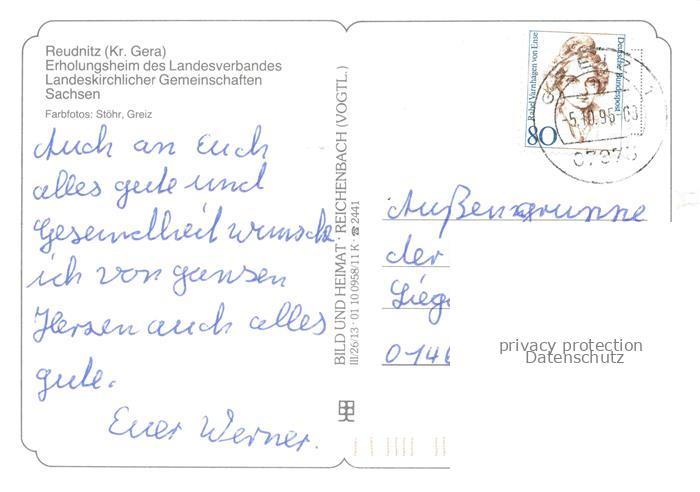 Reudnitz (Kr. Gera)
Erholungsheim des Landesverbandes
Landeskirchlicher Gemeinschaften
Sachsen
Farbfotos: Stöhr, Greiz
Auch an Euch
alles gute und
Gesundheit wünsche
ich von ganzen
Herzen auch alles
gute.
Euer Werner.
BILD UND HEIMAT · REICHENBACH (VOGTL.)
III/26/13 · 01 10 0958/11 K · ☎ 2441
Rahel Varnhagen von Ense
Deutsche Bundespost
80
GREIZ 1
-5.10.95-
07973
der
privacy protection
Datenschutz